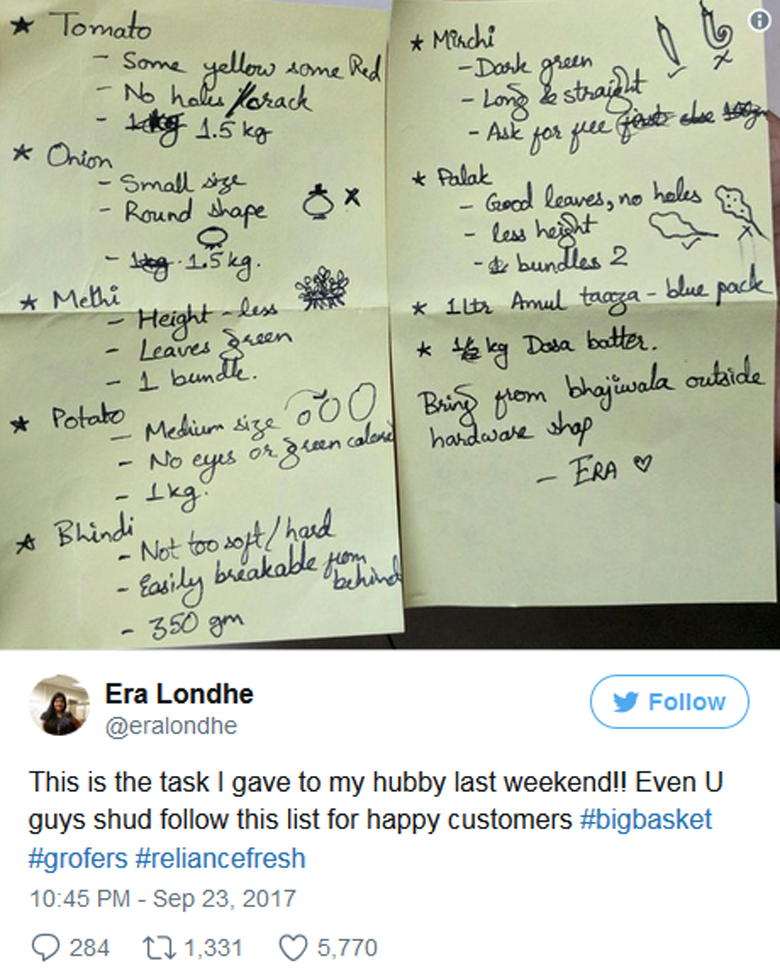 ★ Tomato
- Some yellow some Red
- No holes/crack
- 1.5 kg
★ Onion
- Small size
- Round shape
x
- 1kg 1.5 kg.
★ Methi
- Height - less
- Leaves green
- 1 bundle.
★ Potato
- Medium size
- No eyes or green colored
- 1 kg.
★ Bhindi
- Not too soft/hard
- Easily breakable from
behind
- 350 gm
★ Mirchi
- Dark green
- Long & straight
- Ask for free first else
★ Palak
- Good leaves, no holes
- less height
- bundles 2
★ 1 Ltr Amul taaza - blue pack
★ 1/2 kg Dosa batter.
Bring from bhajiwala outside
hardware shop
- ERA ♡
Era Londhe
@eralondhe
Follow
This is the task I gave to my hubby last weekend!! Even U
guys shud follow this list for happy customers #bigbasket
#grofers #reliancefresh
10:45 PM - Sep 23, 2017
284 1,331 5,770